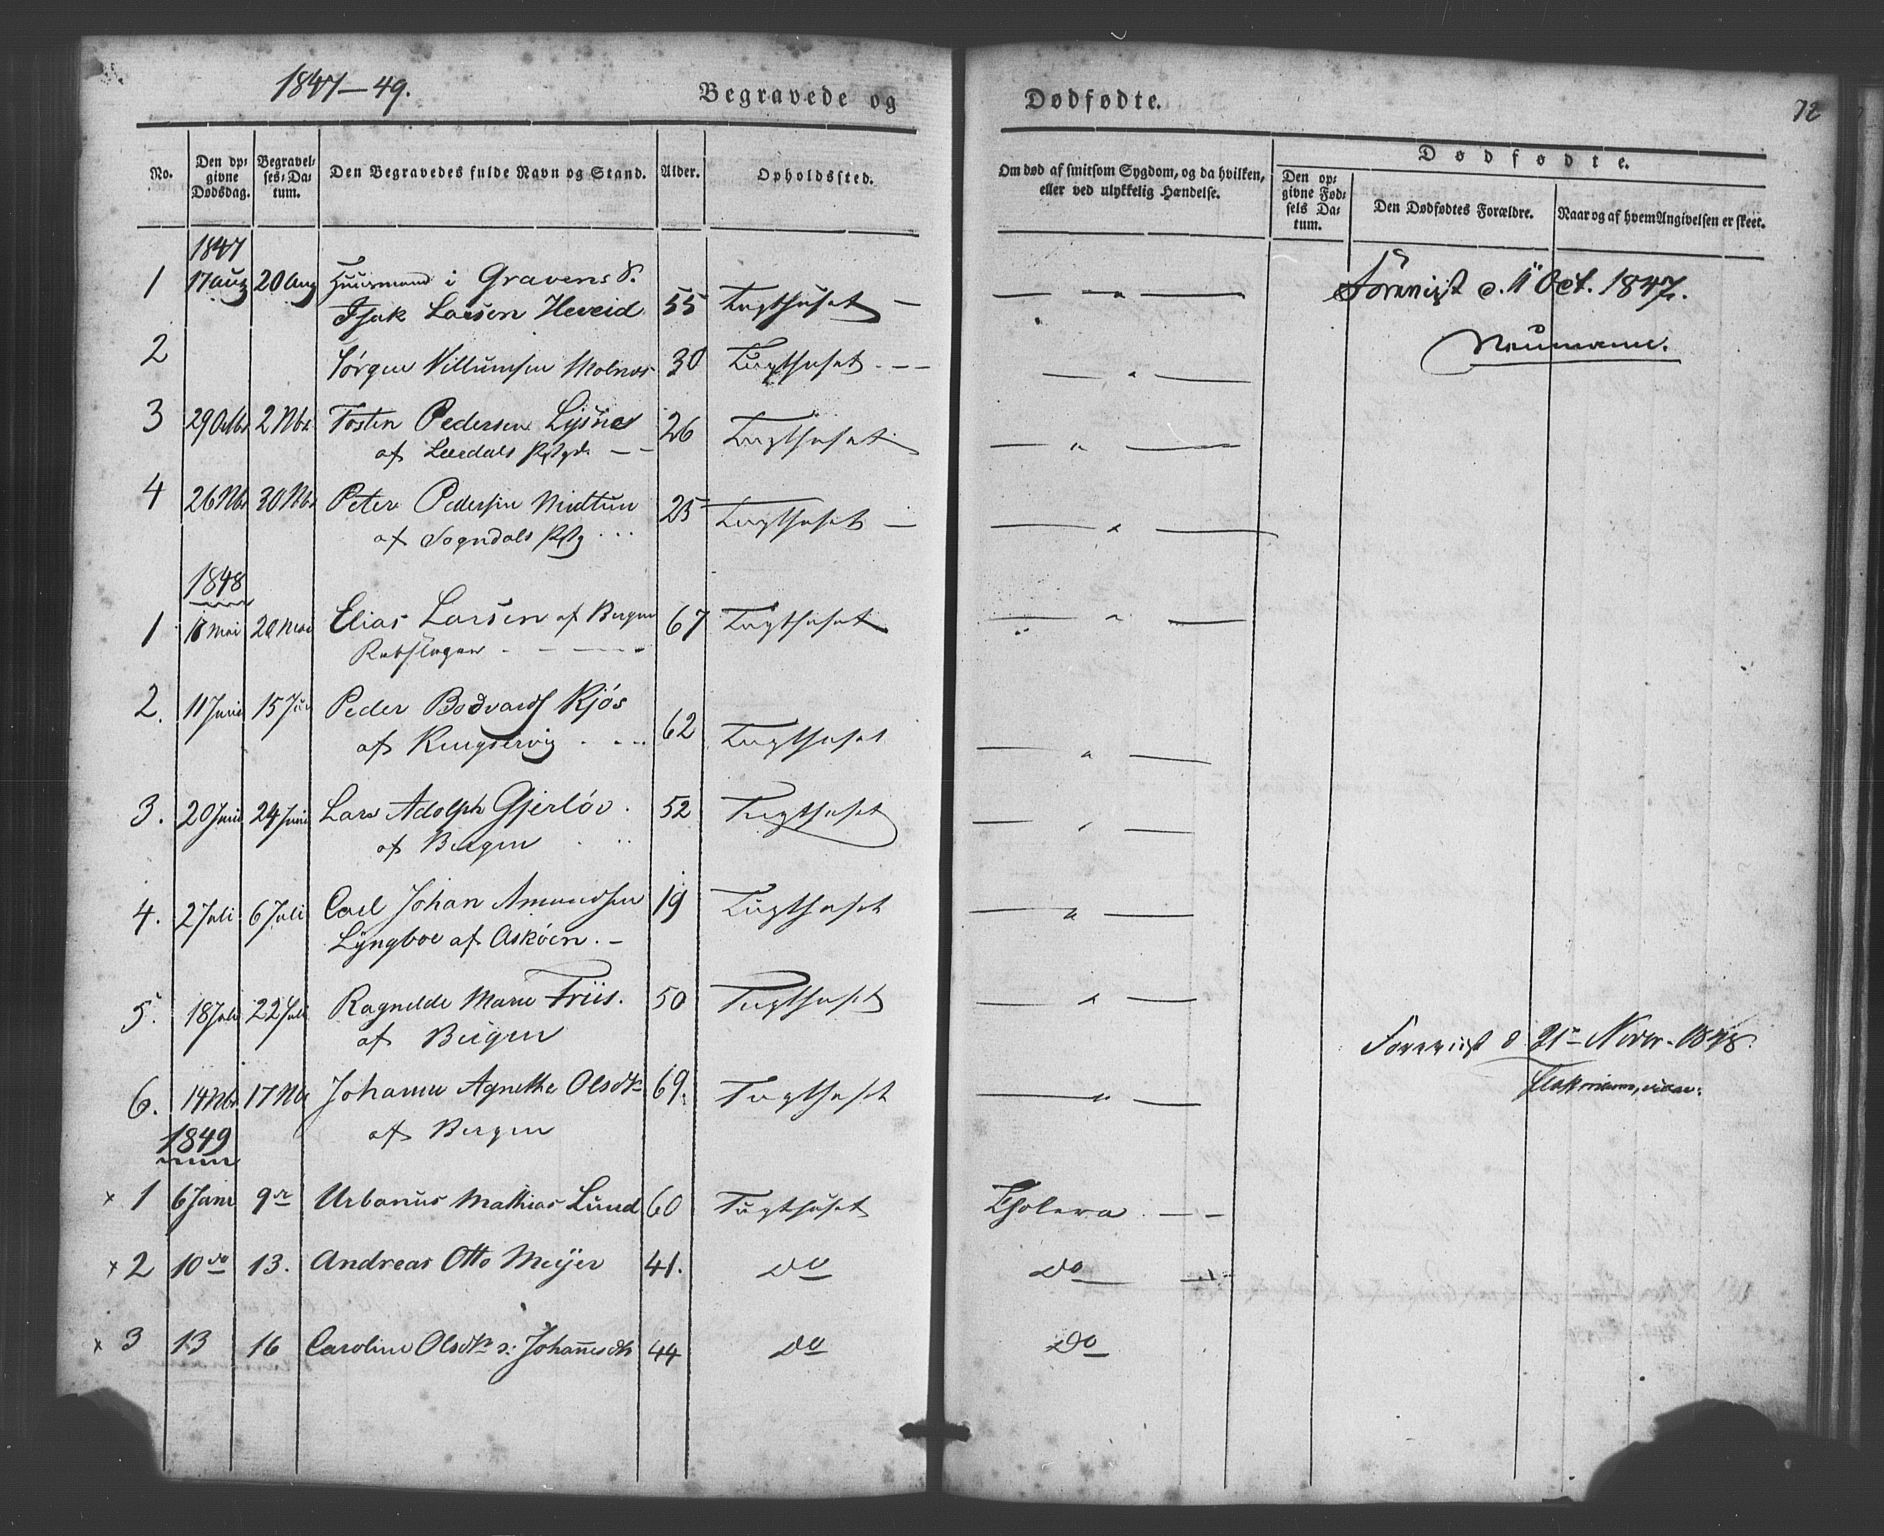 1847-49.
Begravede og
Dødfødte.
72
No.
Den op-
givne
Dødsdag.
Begravel-
ses-Da-
tum.
Den Begravedes fulde Navn og Stand.
Alder.
Opholdssted.
Om død af smitsom Sygdom, og da hvilken,
eller ved ulykkelig Hændelse.
Dødfødte.
Den op-
givne Fød-
sels Da-
tum.
Den Dødfødtes Forældre.
Naar og af hvem Angivelsen er skeet.
1847
1 17 Aug 20 Aug Huusmand i Gravens S.
Isak Larsen Heveid 55 Tugthuset — — " —
Foreviist d. 11 Oct. 1847.
Neumann.
2 Jørgen Villumsen Molnes 30 Tugthuset . — — — " —
3 29 Octbr 2 Nbr Tosten Pedersen Lysne 26 Tugthuset — " —
af Leerdals Pstgd — —
4 26 Nbr 30 Nbr Peter Pedersen Midtun 25 Tugthuset — — " —
af Sogndals Pstg ...
1848
1 18 Mai 20 Mai Elias Larsen af Bergen 67 Tugthuset — " —
Rebslager - - - -
2. 11 Juni 15 Jun Peder Bodvards Kjøs
af Kingservig . - - . 62 Tugthuset — " —
3. 20 Juni 24 Juni Lars Adolph Gjerløv . 52 Tugthuset — " —
af Bergen . ..
4. 2 Juli 6 Juli Carl Johan Amundsen 19 Tugthuset — " —
Lyngboe af Askøen. -
5. 18 Juli 22 Juli Ragnelde Marie Friis. 50 Tugthuset — " —
af Bergen
Foreviist d 21de Novbr. 1848.
6. 14 Nbr 17 Nbr Johanne Agnethe Olsdtr 69. Tugthuset — " —
af Bergen
1849
x 1 6 Janr 9de Urbanus Mathias Lund 60 Tugthuset Cholera . — —
x 2 10 do 13. Andreas Otto Meyer 41. do do — —
x 3 13 16 Caroline Olsdtr o: Johannesdtr 44 do do